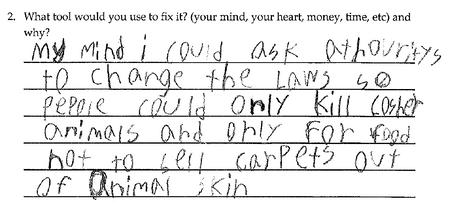 2. What tool would you use to fix it? (your mind, your heart, money, time, etc) and
why?
My Mind i could ask athouritys
to change the Laws so
pepole could only kill cosher
animals and only for food
not to sell carpets out
of animal skin